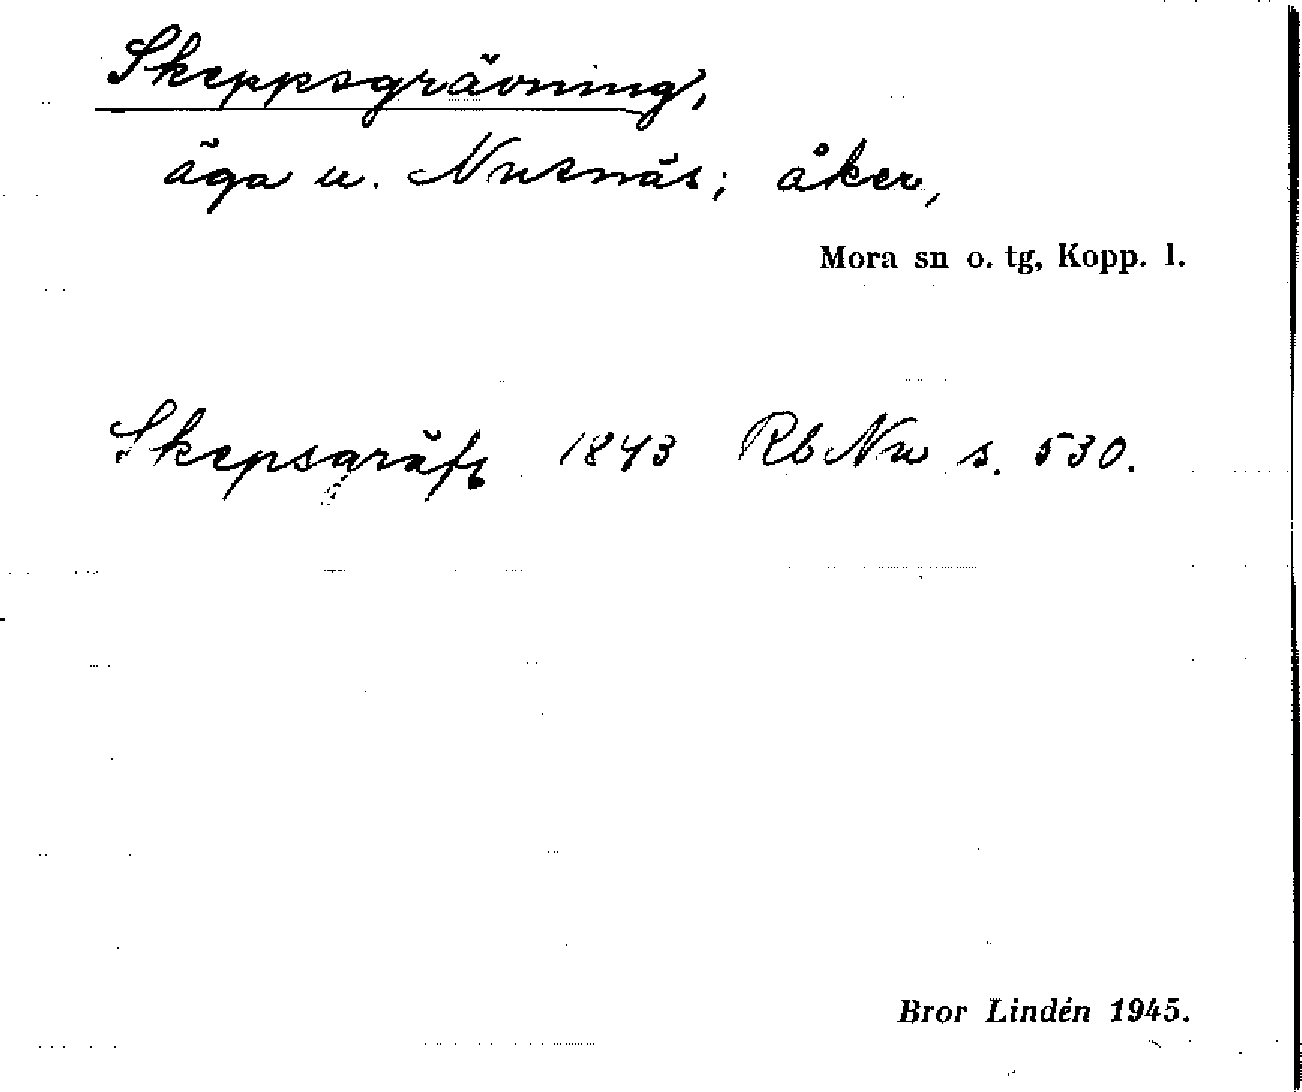 Skeppsgrävning,
äga u. Nusnäs; åker,
Mora sn o. tg, Kopp. l.
Skepsgräft 1843 Rb Nu s. 530.
Bror Lindén 1945.